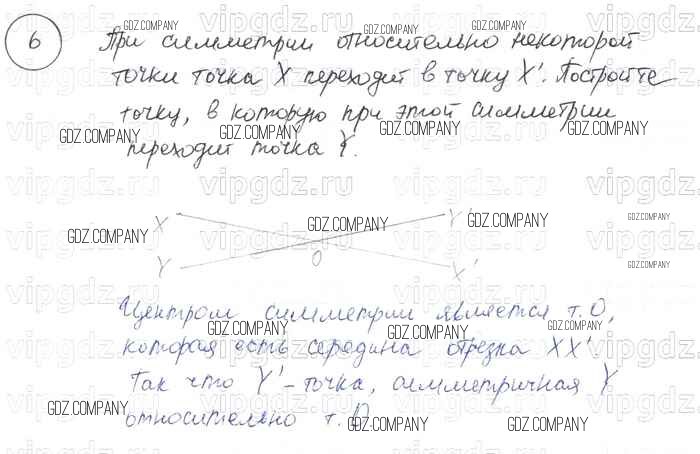 6 При симметрии относительно некоторой
точки точка X переходит в точку X'. Постройте
точку, в которую при этой симметрии
переходит точка Y.
X Y'
Y O X'
Центром симметрии является т. O,
которая есть середина отрезка XX'
Так что Y' - точка, симметричная Y
относительно т. O